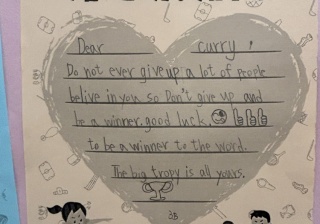 Dear curry,
Do not ever give up a lot of people
belive in you so Don't give up and
be a winner, good luck.
to be a winner to the word.
The big tropy is all yours.
3B